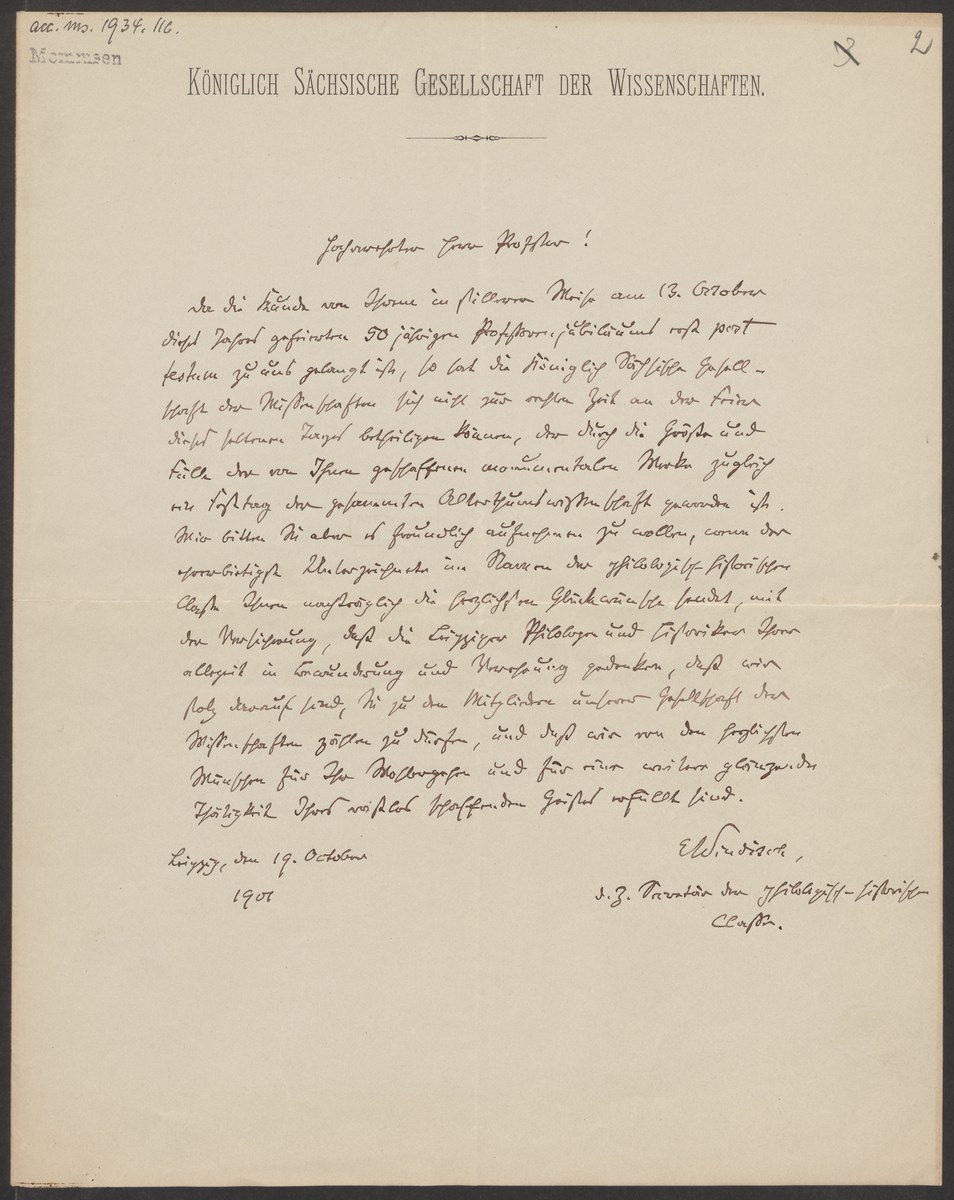 acc. ms. 1934. 116.
Mommsen
2
KÖNIGLICH SÄCHSISCHE GESELLSCHAFT DER WISSENSCHAFTEN.
Hochverehrter Herr Professor!
Da die Kunde von Ihrem in stillerer Weise am 13. October
dieses Jahres gefeierten 50 jährigen Professorenjubiläums erst post
festum zu uns gelangt ist, so hat die Königlich Sächsische Gesell-
schaft der Wissenschaften sich nicht zur rechten Zeit an der Feier
dieses seltenen Tages betheiligen können, der durch die Größe und
Fülle der von Ihnen geschaffenen monumentalen Werke zugleich
ein Festtag der gesammten Alterthumswissenschaft geworden ist.
Wir bitten Sie aber es freundlich aufnehmen zu wollen, wenn der
ehrerbietigst Unterzeichnete im Namen der philologisch-historischen
Classe Ihnen nachträglich die herzlichsten Glückwünsche sendet, mit
der Versicherung, daß die Leipziger Philologen und Historiker Ihrer
allezeit in Bewunderung und Verehrung gedenken, daß wir
stolz darauf sind, Sie zu den Mitgliedern unserer Gesellschaft der
Wissenschaften zählen zu dürfen, und daß wir von den herzlichsten
Wünschen für Ihr Wohlergehen und für eine weitere glänzende
Thätigkeit Ihres rastlos schaffenden Geistes erfüllt sind.
Leipzig, den 19. October
1901
EWindisch,
d. Z. Secretär der philologisch-historischen
Classe.